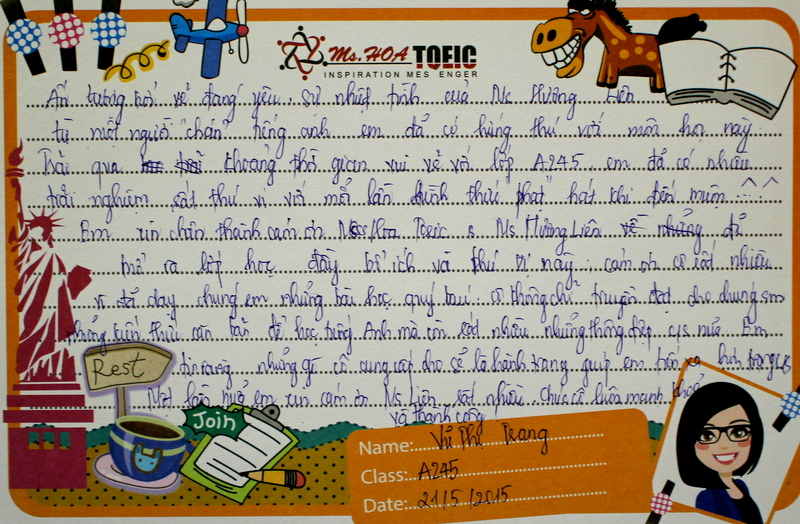 Ms. HOA TOEIC
INSPIRATION MES ENGER
Ấn tượng bởi vẻ đáng yêu, sự nhiệt tình của Ms Hương Liên
từ một người "chán" tiếng anh em đã có hứng thú với môn học này
Trải qua khoảng thời gian vui vẻ với lớp A245 em đã có nhiều
trải nghiệm rất thú vị với mỗi lần hình thức "phạt" hát khi đến muộn ^^
Em xin chân thành cám ơn Ms Hoa Toeic & Ms. Hương Liên đã
mở ra lớp học đầy bổ ích và thú vị này, cám ơn cô rất nhiều
vì đã dạy chúng em những bài học quý báu. cô không chỉ truyền đạt cho chúng em
những kiến thức căn bản để học tiếng Anh mà còn rất nhiều những thông điệp c/s nữa. Em
tin rằng những gì cô cung cấp cho sẽ là hành trang giúp em trên
Một lần nữa em xin cám ơn Ms. Liên rất nhiều. Chúc cô luôn mạnh khoẻ
và thành công
Rest
Join
Name: Vũ Thị Trang
Class: A245
Date: 21/5/2015